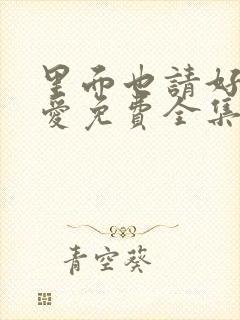 里而也請好
愛免費全集
青空葵